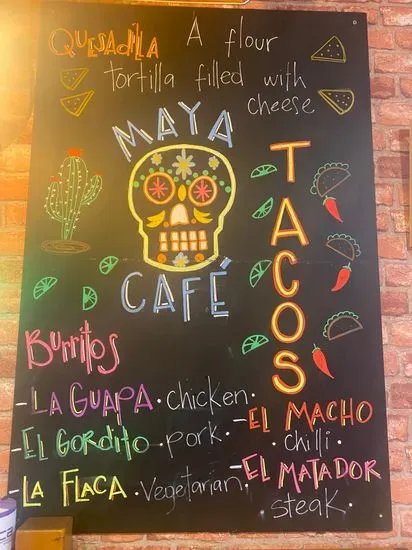 QUESADILLA A flour
tortilla filled with
cheese
MAYA
CAFÉ
TACOS
Burritos
- LA GUAPA · chicken ·
- EL GORDITO · pork ·
LA FLACA · Vegetarian
- EL MACHO
· chilli ·
- EL MATADOR
steak ·